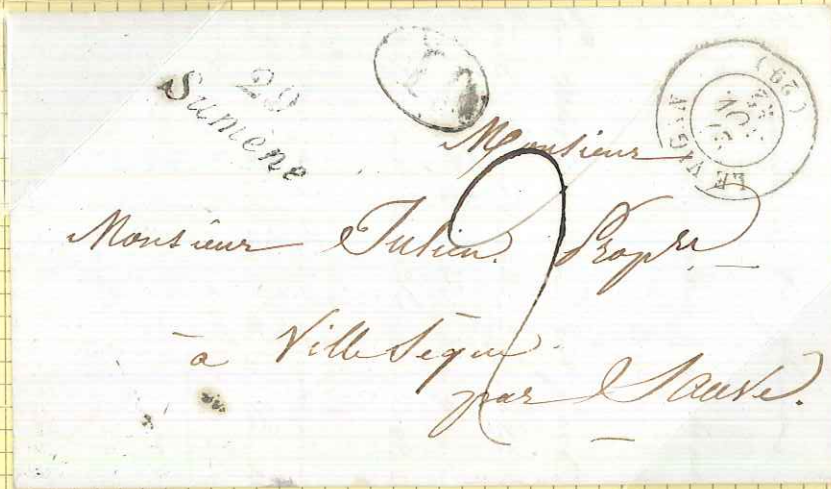 29
Sumène
LE VIGAN (29)
NOV.
Monsieur
Monsieur Julien. Propre
à Ville Sèque
par Sauve.
2